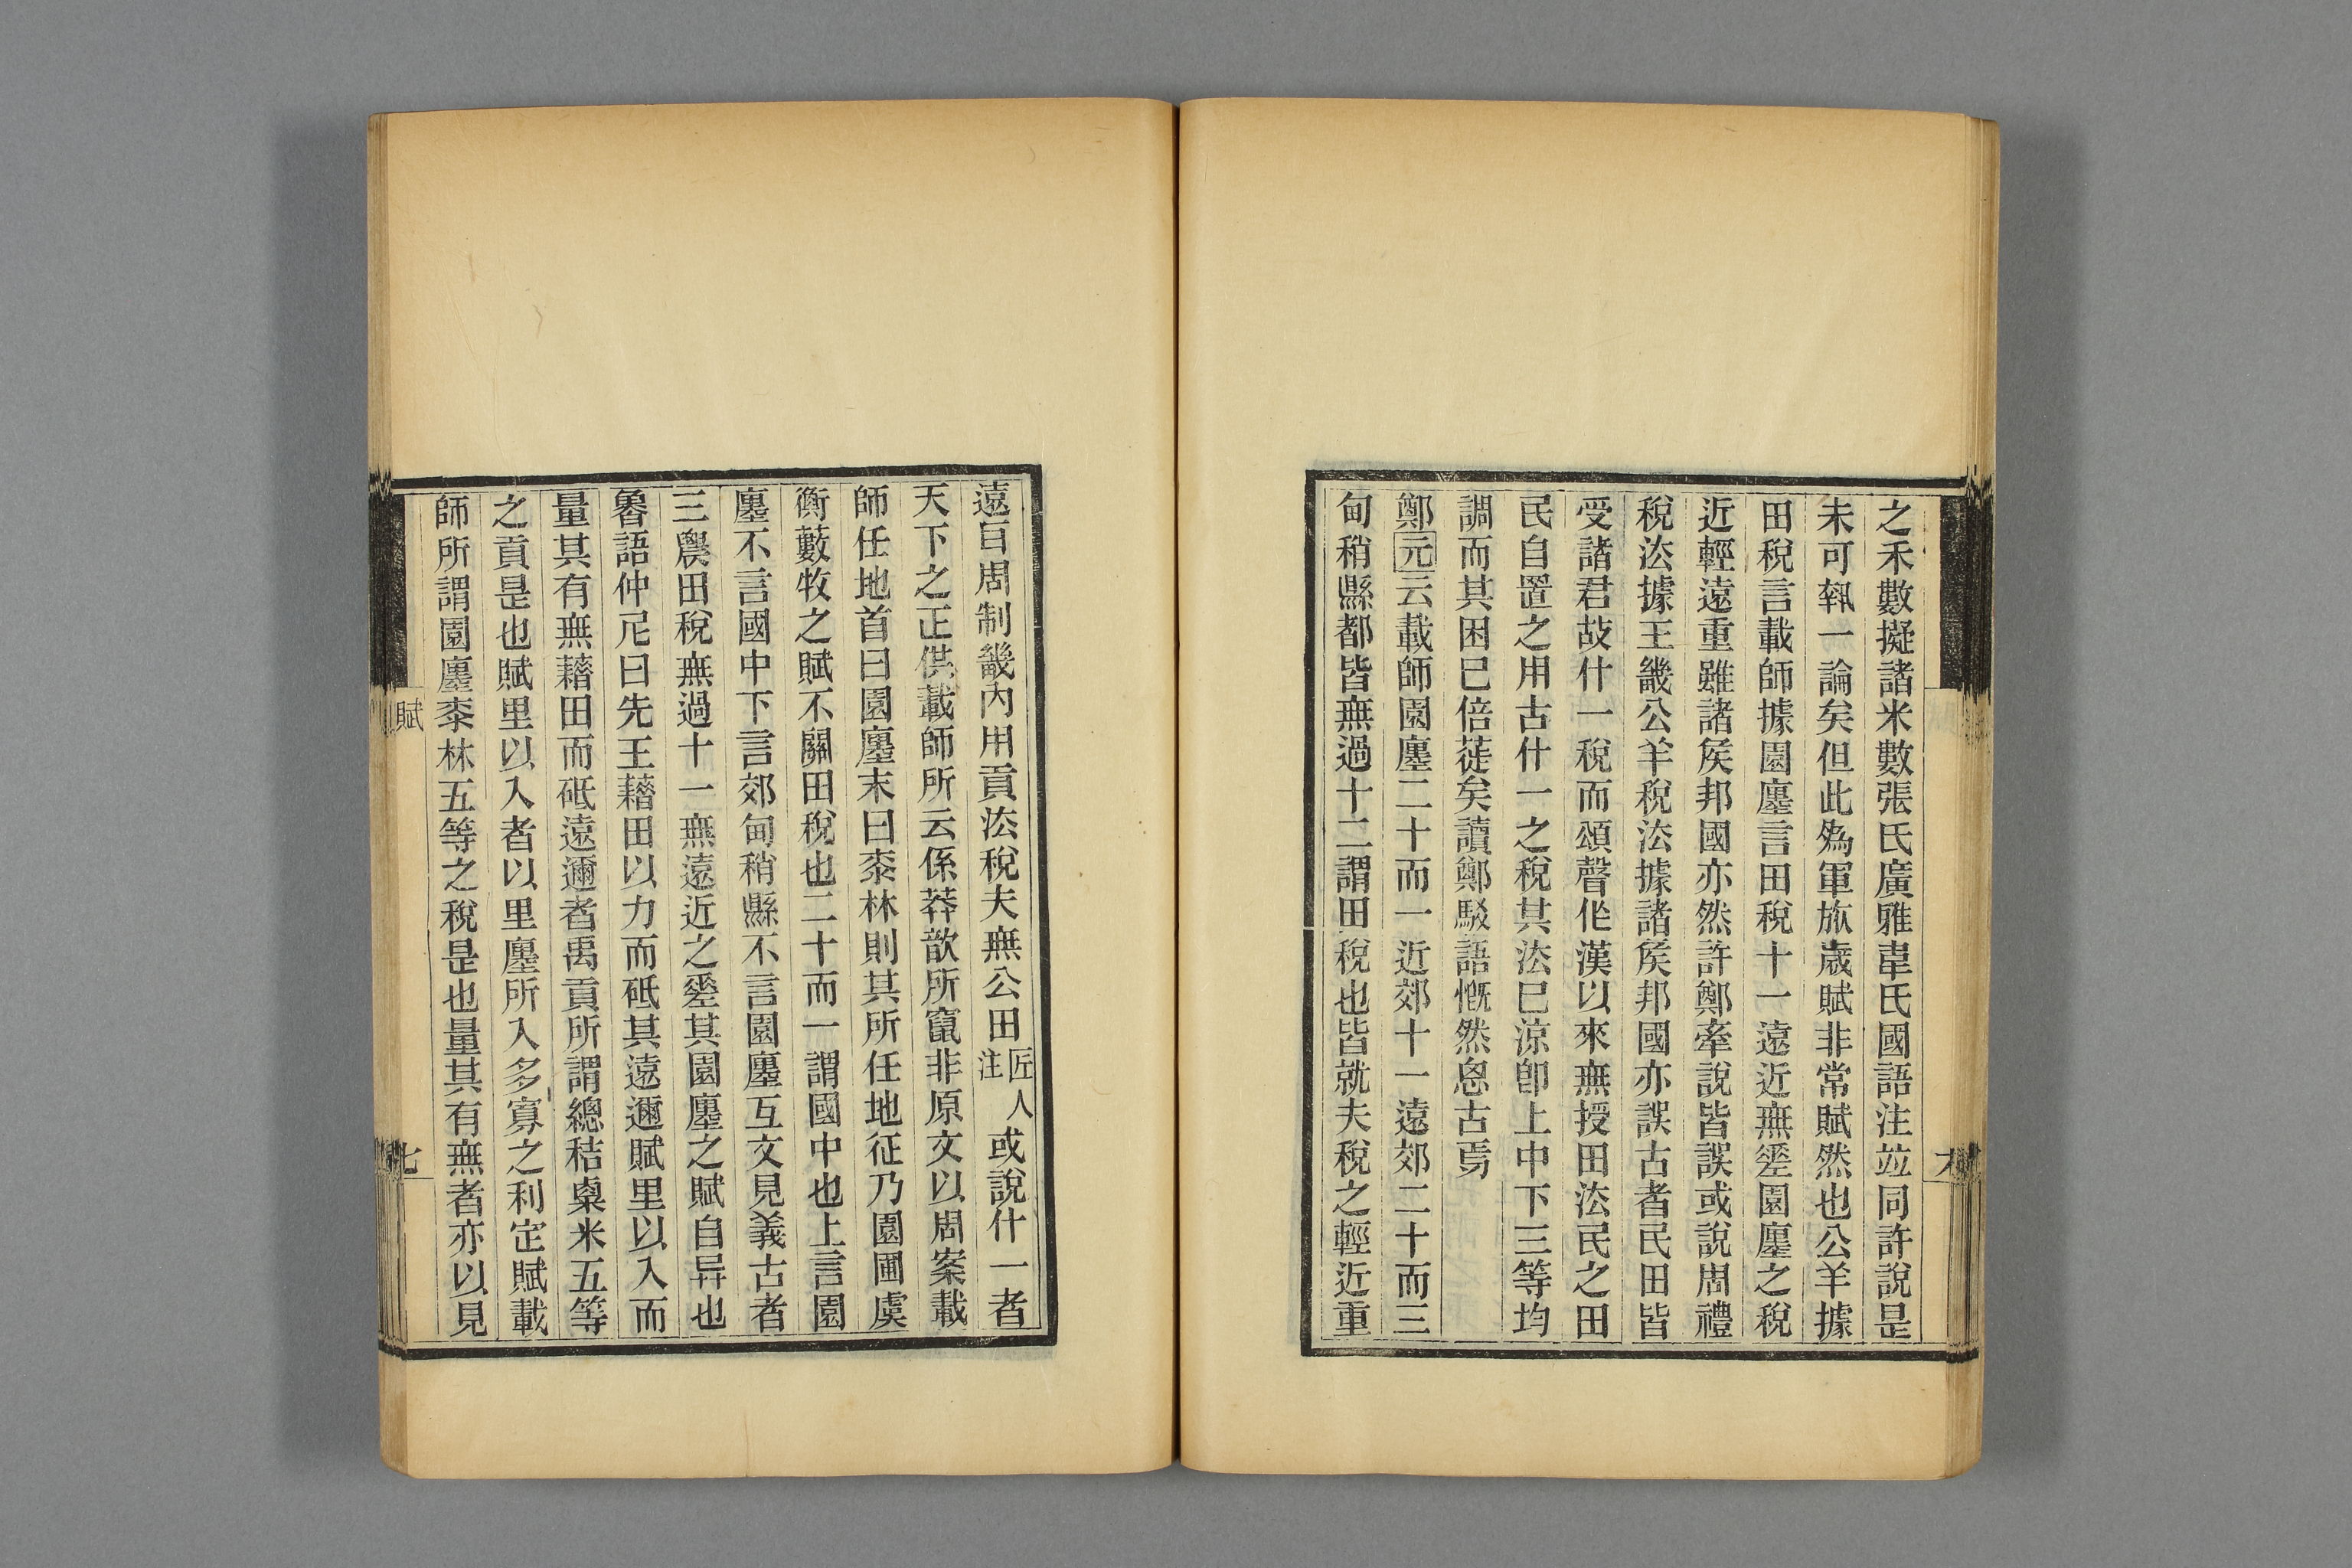 之禾數擬諸米數張氏廣雅韋氏國語注竝同許說是
未可執一論矣但此為軍旅歲賦非常賦然也公羊據
田稅言載師據園廛言田稅十一遠近無差園廛之稅
近輕遠重雖諸矦邦國亦然許鄭牽說皆誤或說周禮
稅法據王畿公羊稅法據諸矦邦國亦誤古者民田皆
受諸君故什一稅而頌聲作漢以來無授田法民之田
民自置之用古什一之稅其法已涼卽上中下三等均
調而其困已倍蓰矣讀鄭駁語慨然恖古焉
鄭元云載師園廛二十而一近郊十一遠郊二十而三
甸稍縣都皆無過十二謂田稅也皆就夫稅之輕近重
遠目周制畿內用貢法稅夫無公田匠人注或說什一者
天下之正供載師所云係莽歆所竄非原文以周案載
師任地首曰園廛末曰桼林則其所任地征乃園圃虞
衡藪牧之賦不關田稅也二十而一謂國中也上言園
廛不言國中下言郊甸稍縣不言園廛互文見義古者
三農田稅無過十一無遠近之差其園廛之賦自异也
魯語仲尼曰先王藉田以力而砥其遠邇賦里以入而
量其有無藉田而砥遠邇者禹貢所謂總秸粟米五等
之貢是也賦里以入者以里廛所入多寡之利定賦載
師所謂園廛桼林五等之稅是也量其有無者亦以見
賦
七